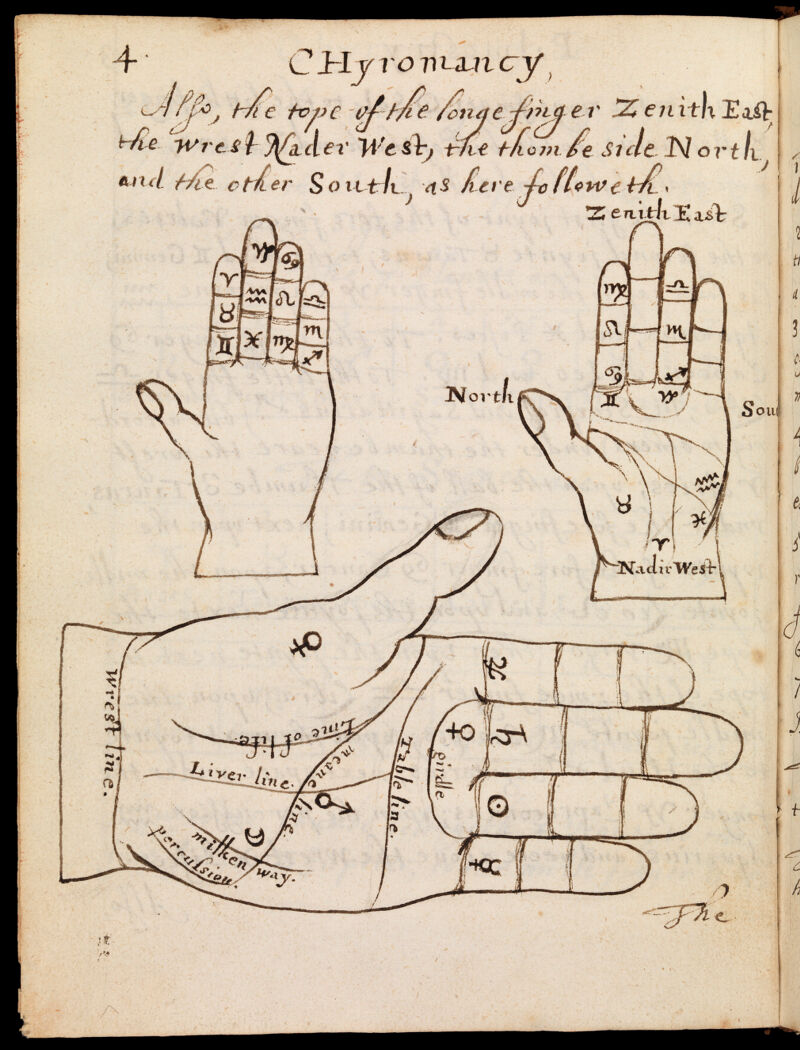 4
CHyromancy,
Also, the tope of the longe finger Zenith East,
the wrest Nader West, the thombe side North,
and the other South, as here followeth.
Zenith East
♈ ♉ ♊
♑ ♒ ♓
♋ ♌ ♍
♎ ♏ ♐
♍ ♌ ♋ ♊
♎ ♏ ♐ ♑
North
Sou
♒
♓
♉
♈
Nadir West
♀
♃
Wrest line.
Line of life
Liver line.
meane line.
Table line.
girdle
♀
♄
♂
☉
☽
milken way.
percussion.
☿
The